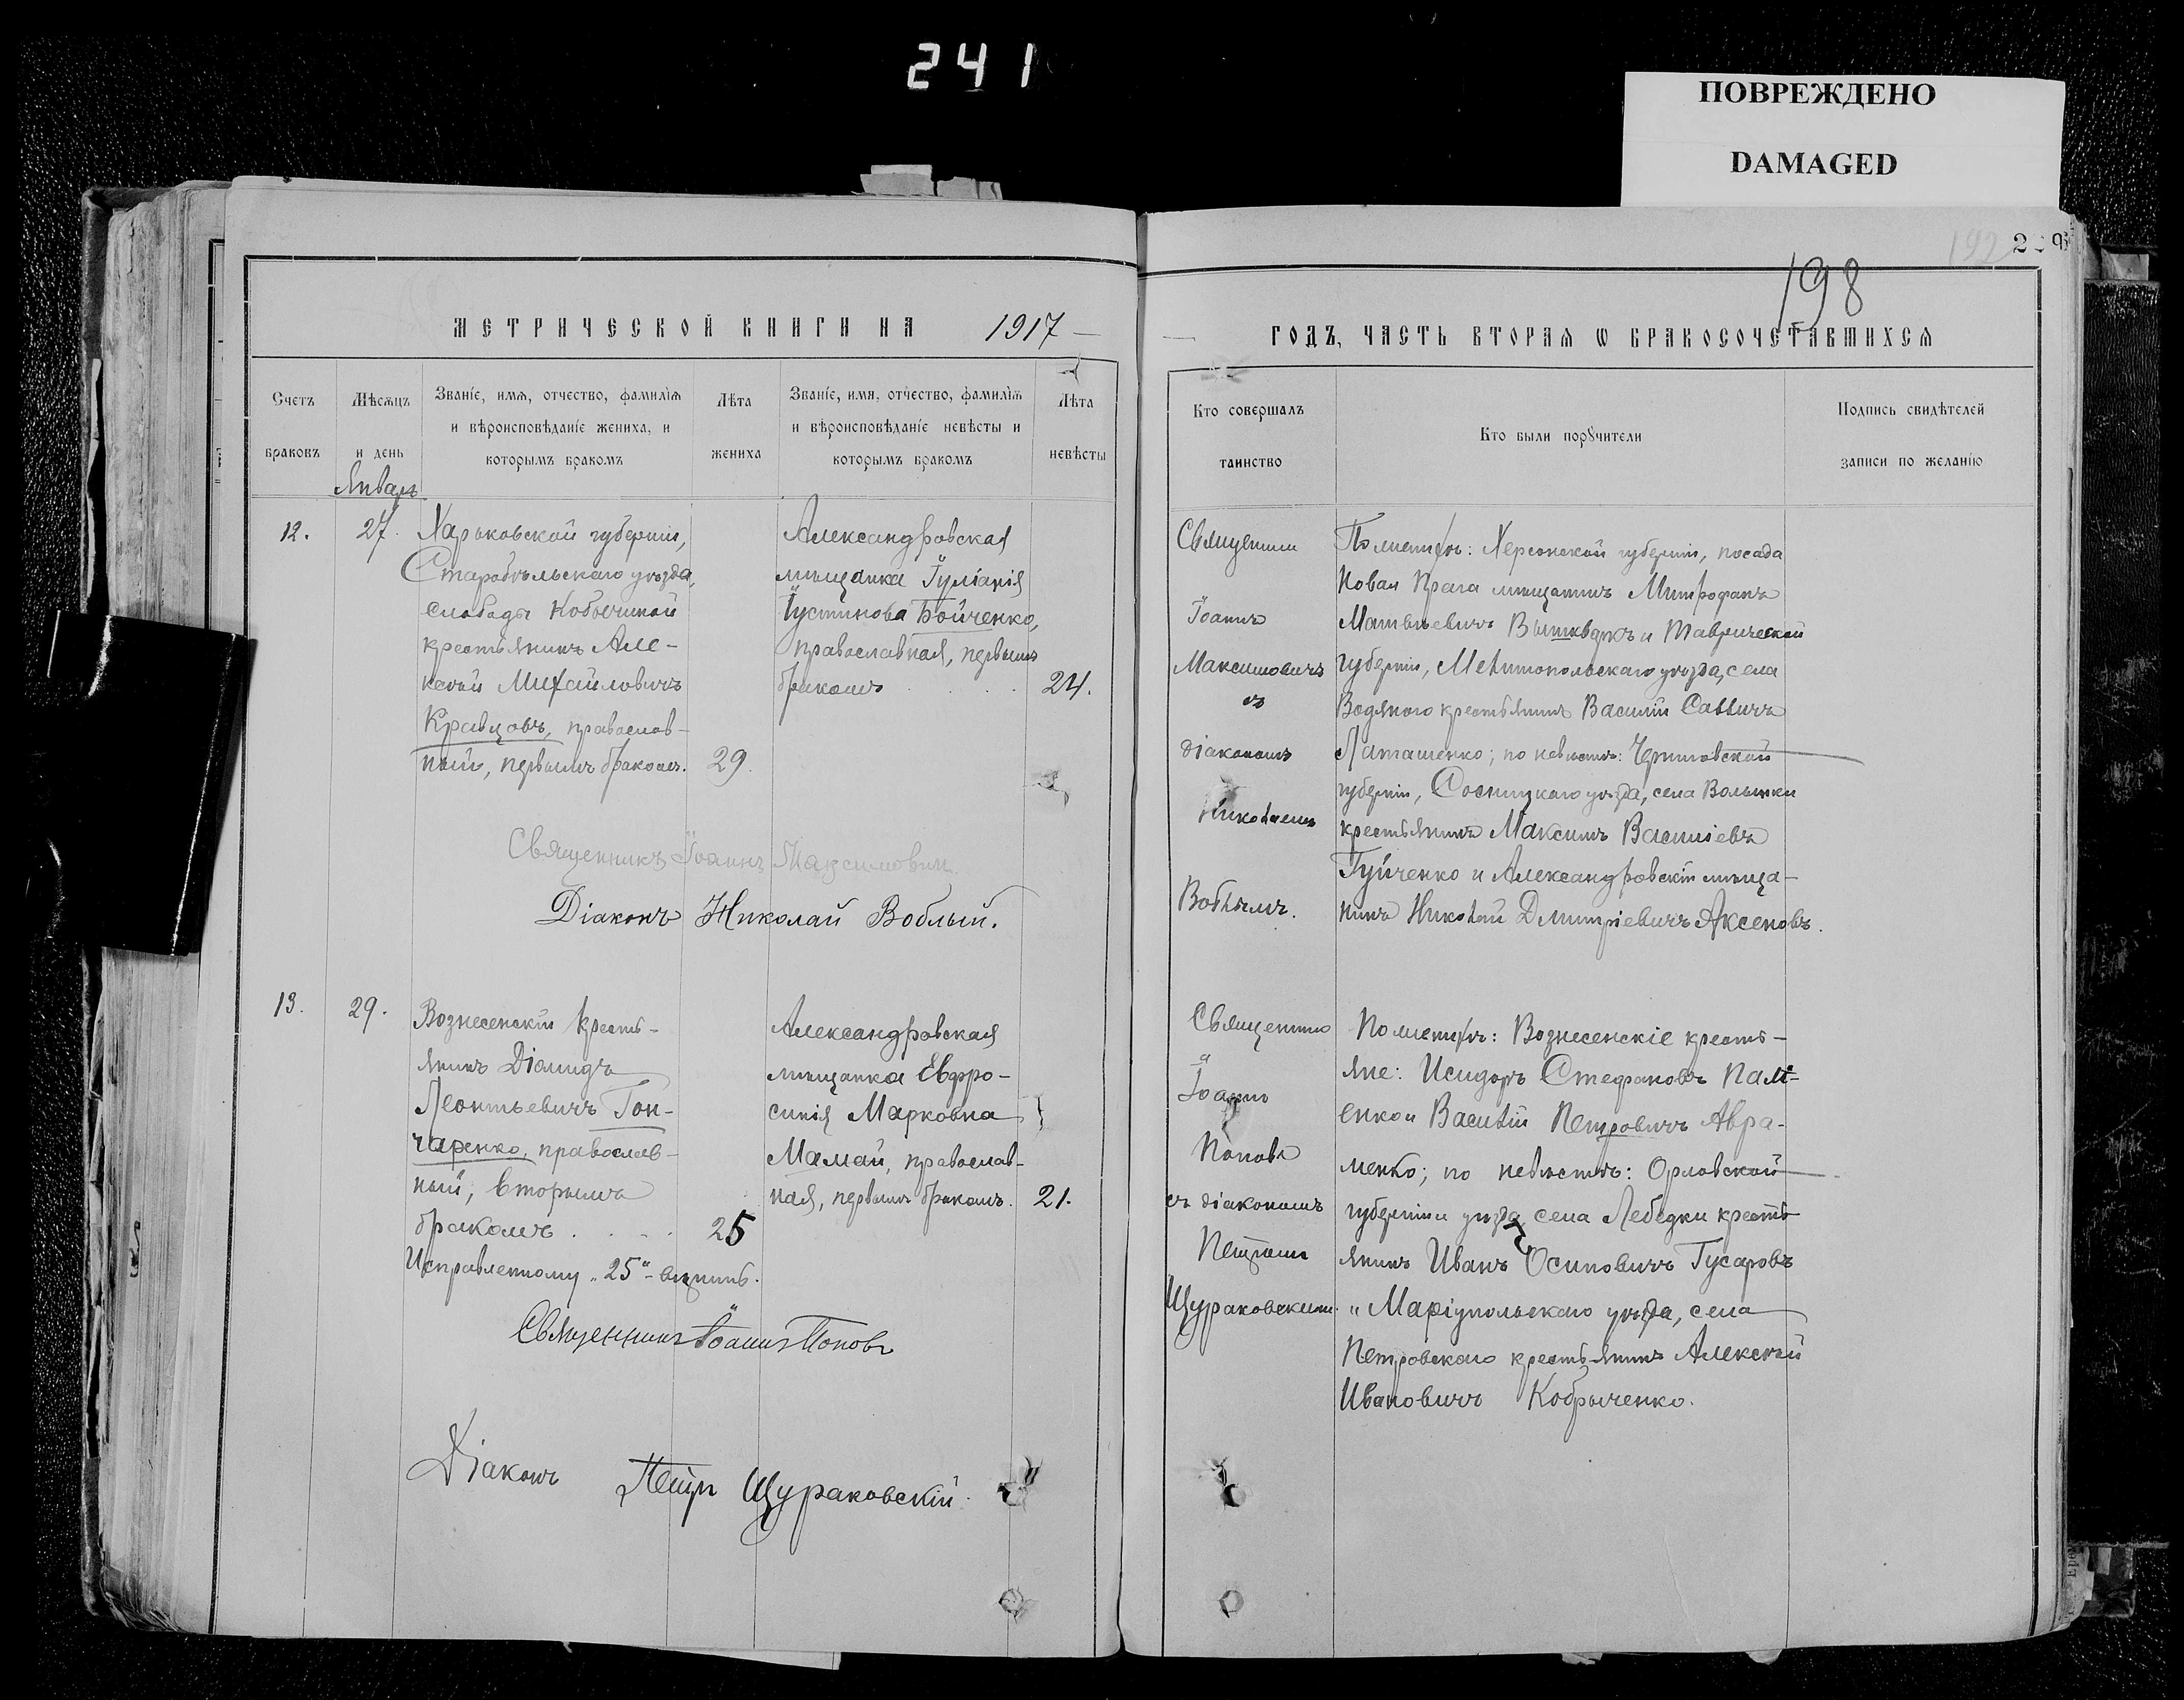 241
ПОВРЕЖДЕНО
DAMAGED
192
198
МЕТРИЧЕСКОЙ КНИГИ НА 1917
Счетъ браковъ
Мѣсяцъ и день
Званіе, имя, отчество, фамилія
и вѣроисповѣданіе жениха, и
которымъ бракомъ
Лѣта жениха
Званіе, имя, отчество, фамилія
и вѣроисповѣданіе невѣсты и
которымъ бракомъ
Лѣта невѣсты
Январь
12.
27.
Харьковской губерніи,
Старобѣльскаго уѣзда,
слободы
крестьянинъ Але-
ксѣй Михайловичъ
Кравцовъ, православ-
ный, первымъ бракомъ.
29.
Александровская
мѣщанка Іуліанія
Іустинова Бойченко,
православная, первымъ
бракомъ
24.
Священникъ Іоаннъ Максимовичъ
Діаконъ Николай Воблый.
13.
29.
Вознесенскій кресть-
янинъ Діомидъ
Леонтьевичъ Гон-
чаренко, православ-
ный, вторымъ
бракомъ
25
Исправленному „25“ вѣрить.
Александровская
мѣщанка Евфро-
синія Марковна
Мамай, православ-
ная, первымъ бракомъ.
21.
Священникъ Іоаннъ Поповъ
Діаконъ Петръ Щураковскій.
ГОДЪ, ЧАСТЬ ВТОРАЯ Ѡ БРАКОСОЧЕТАВШИХСЯ
Кто совершалъ
таинство
Кто были порꙋчители
Подпись свидѣтелей
записи по желанію
Священникъ
Іоаннъ
Максимовичъ
съ
діакономъ
Николаемъ
Воблымъ.
По женихѣ: Херсонской губерніи, посада
Новая Прага мѣщанинъ Митрофанъ
Матвѣевичъ и Таврической
губерніи, Мелитопольскаго уѣзда, села
Водяного крестьянинъ Василій Саввичъ
Латашенко; по невѣстѣ: Черниговской
губерніи, Сосницкаго уѣзда, села Волынки
крестьянинъ Максимъ Василіевъ
Гуйченко и Александровскій мѣща-
нинъ Николай Дмитріевичъ Аксеновъ.
Священникъ
Іоаннъ
Поповъ
съ діакономъ
Петромъ
Щураковскимъ.
По женихѣ: Вознесенскіе кресть-
яне: Исидоръ Стефановъ Палі-
енко и Василій Петровичъ Авра-
менко; по невѣстѣ: Орловской
губерніи и уѣзда, села Лебедки кресть-
янинъ Иванъ Осиповичъ Гусаровъ
и Маріупольскаго уѣзда, села
Петровскаго крестьянинъ Алексѣй
Ивановичъ Кобрыченко.